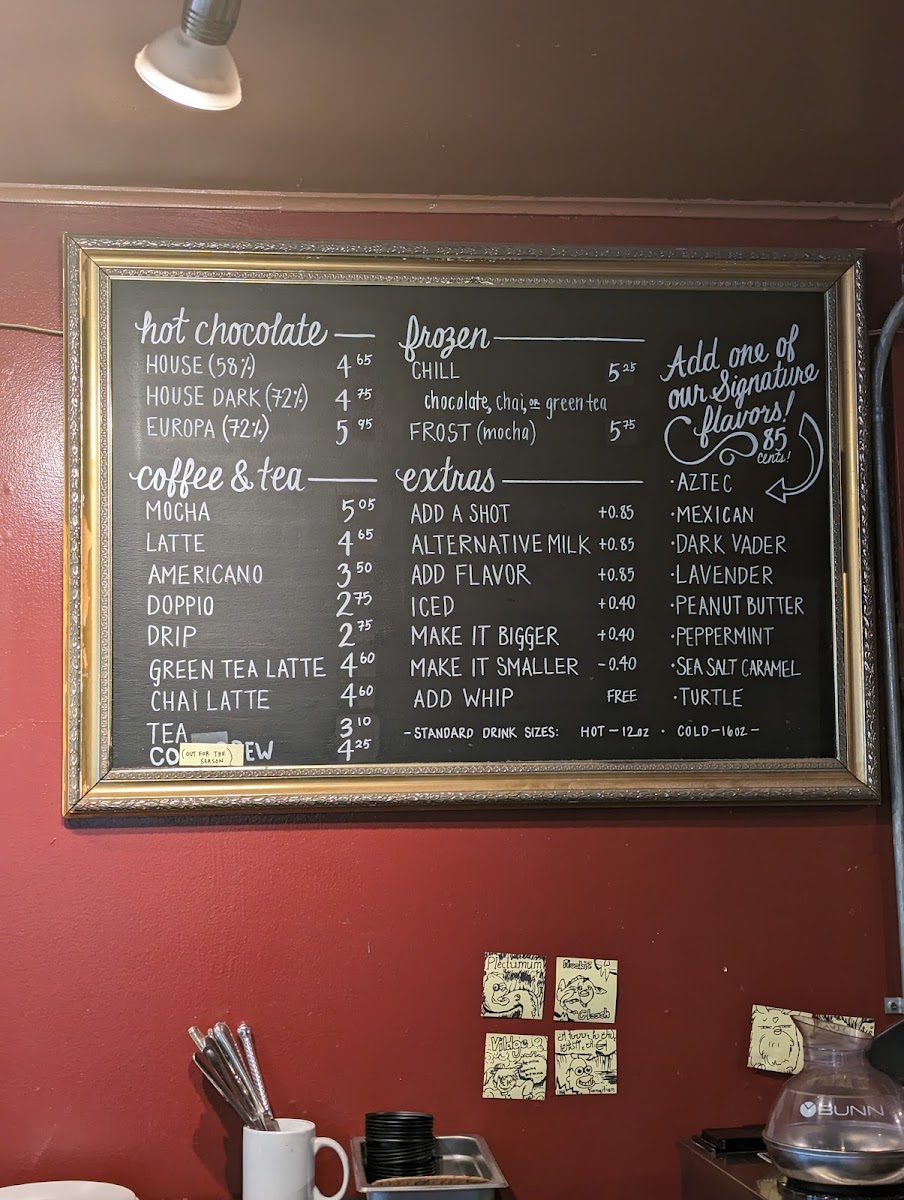 hot chocolate
HOUSE (58%) 4 65
HOUSE DARK (72%) 4 75
EUROPA (72%) 5 95
coffee & tea
MOCHA 5 05
LATTE 4 65
AMERICANO 3 50
DOPPIO 2 75
DRIP 2 75
GREEN TEA LATTE 4 60
CHAI LATTE 4 60
TEA 3 10
CO EW 4 25
(OUT FOR THE
SEASON)
frozen
CHILL 5 25
chocolate, chai, or green tea
FROST (mocha) 5 75
extras
ADD A SHOT +0.85
ALTERNATIVE MILK +0.85
ADD FLAVOR +0.85
ICED +0.40
MAKE IT BIGGER +0.40
MAKE IT SMALLER -0.40
ADD WHIP FREE
-STANDARD DRINK SIZES: HOT-12oz · COLD-16oz-
Add one of
our Signature
flavors!
85
cents!
·AZTEC
·MEXICAN
·DARK VADER
·LAVENDER
·PEANUT BUTTER
·PEPPERMINT
·SEA SALT CARAMEL
·TURTLE
Plectumum
BUNN